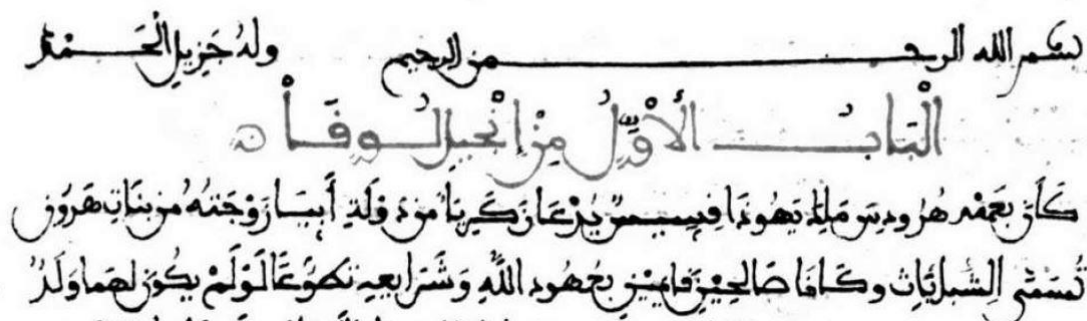 بسم الله الرحمن الرحيم وله جزيل الحمد
الباب الأول من إنجيل لوقا
كان بعهد هرودس ملك يهوذا قسيس يدعا زكرياء من ولد أبيا زوجته من بنات هرون
تسمى وكانا صالحين قايمين بعهود الله وشرايعه ولم يكون لهما ولد